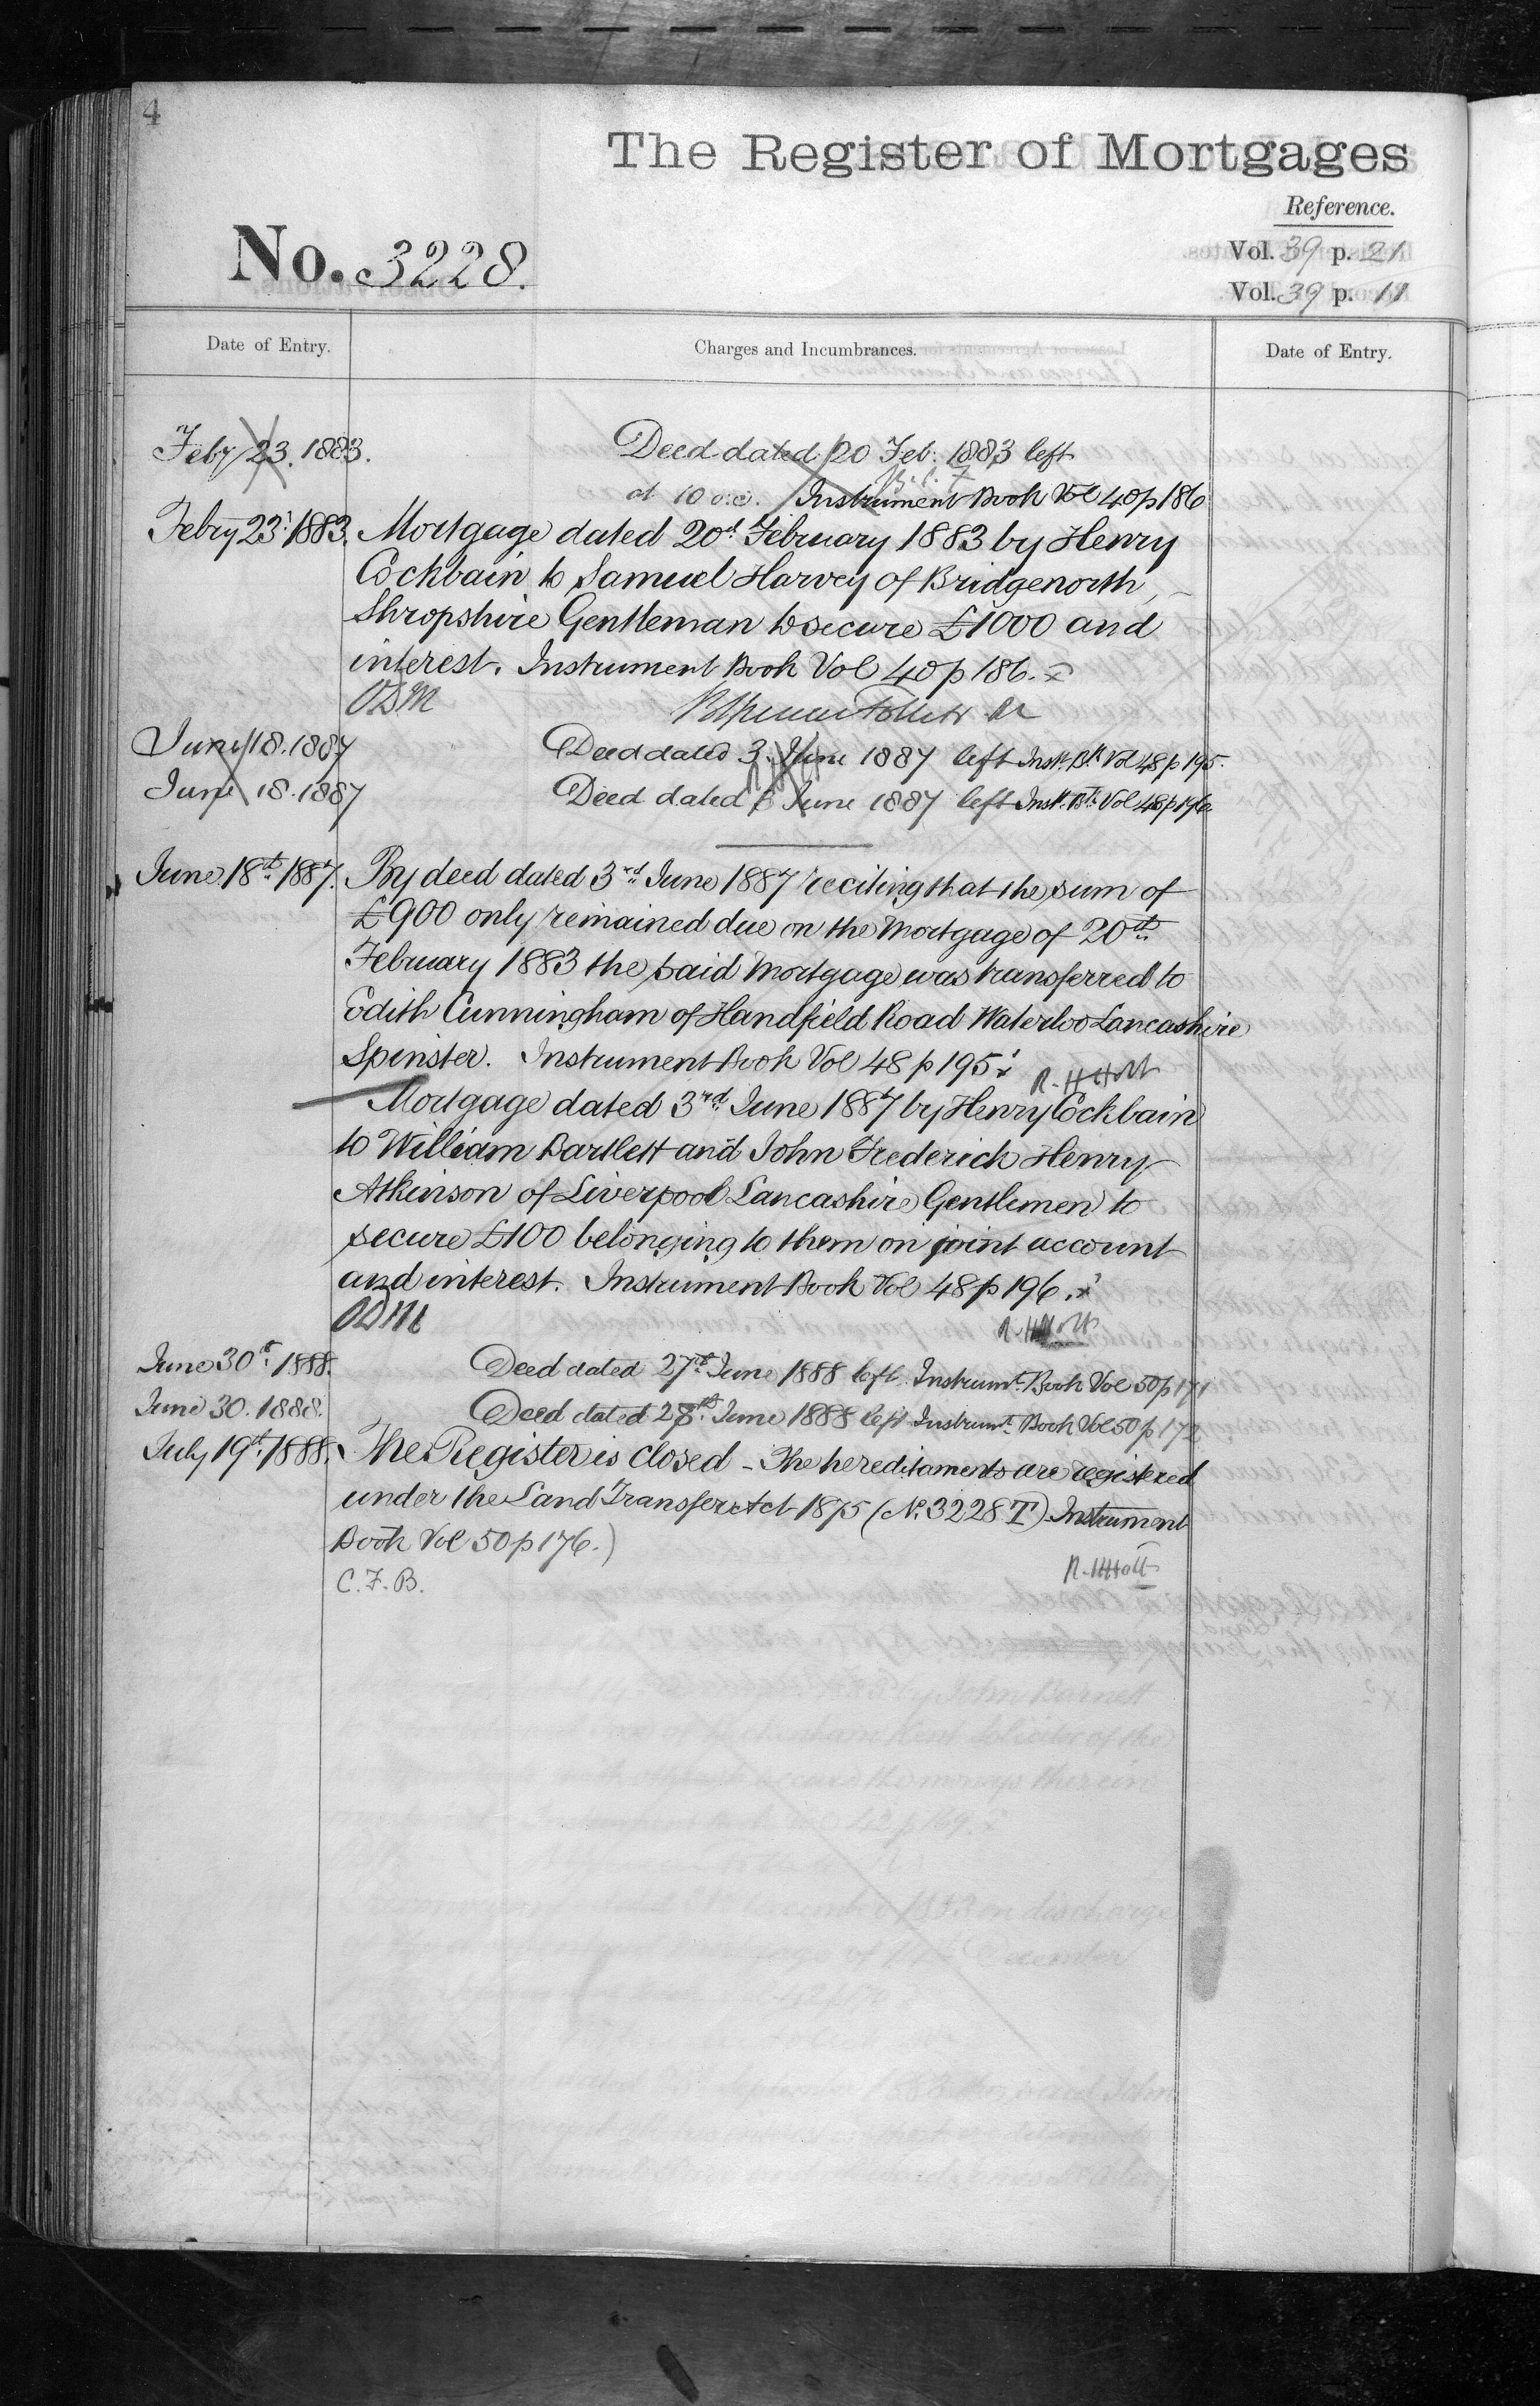 4
The Register of Mortgages
Reference.
No. 3228.
Vol. 39 p. 21
Vol. 39 p. 11
Date of Entry.
Charges and Incumbrances.
Date of Entry.
Feby 23. 1883.
Deed dated 20 Feb. 1883 left
at 10 o.c. Instrument Book Vol 40 p 186
Febry 23d 1883. Mortgage dated 20th February 1883 by Henry
Cockbain to Samuel Harvey of Bridgenorth
Shropshire Gentleman to secure £1000 and
interest. Instrument Book Vol 40 p 186.
June 18. 1887 Deed dated 3 June 1887 left Inst. Bk. Vol 48 p 195.
June 18. 1887 Deed dated June 1887 left Inst. Bk. Vol 48 p 196
June 18th 1887. By deed dated 3rd June 1887 reciting that the sum of
£900 only remained due on the Mortgage of 20th
February 1883 the said Mortgage was transferred to
Edith Cunningham of Handfield Road Waterloo Lancashire
Spinster. Instrument Book Vol 48 p 195.
R. H Holt
Mortgage dated 3rd June 1887 by Henry Cockbain
to William Bartlett and John Frederick Henry
Atkinson of Liverpool Lancashire Gentlemen to
secure £100 belonging to them on joint account
and interest. Instrument Book Vol 48 p 196.
R. H Holt
June 30th 1888. Deed dated 27th June 1888 left Instrumt. Book Vol 50 p 171
June 30. 1888. Deed dated 28th June 1888 left Instrumt. Book Vol 50 p 172
July 19th 1888. The Register is closed - The hereditaments are registered
under the Land Transfer Act 1875 (No. 3228 T) Instrument
Book Vol 50 p 176.)
R. H Holt
C. F. B.